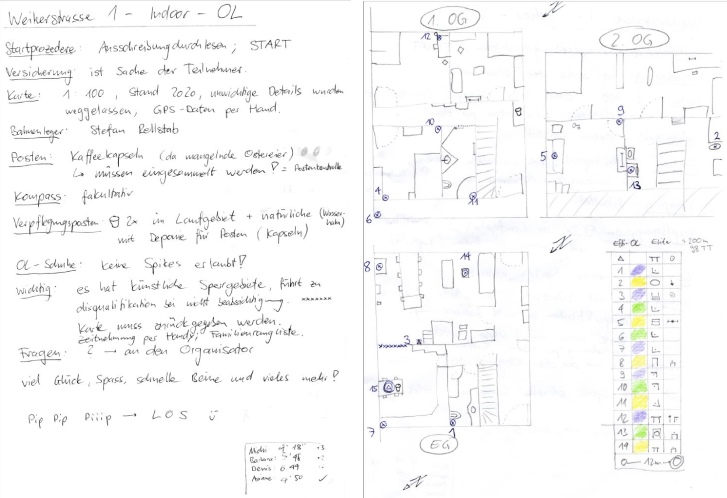 Weikerstrasse 1 - Indoor - OL
Startprozedere: Ausschreibung durchlesen; START
Versicherung: ist Sache der Teilnehmer.
Karte: 1:100, Stand 2020, unwichtige Details wurden
weggelassen, GPS-Daten per Hand.
Bahnenleger: Stefan Rellstab
Posten: Kaffeekapseln (da mangelnde Ostereier)
↳ müssen eingesammelt werden! = Postenkontrolle
Kompass: fakultativ
Verpflegungsposten: 2x im Laufgebiet + natürliche (Wasserhahn)
mit Deponie für Posten (Kapseln)
OL-Schuhe: keine Spikes erlaubt!
Wichtig: es hat künstliche Sperrgebiete, führt zu
disqualifikation bei nicht beabsichtig xxxxxxx
Karte muss zurückgegeben werden.
Zeitmessung per Handy, Familienrangliste.
Fragen: ? → an den Organisator
viel Glück, Spass, schnelle Beine und vieles mehr!
Pip Pip Piiip → LOS ü
1. OG
12
10
4
6
11
2. OG
9
5
2
13
8
14
3
15
7
1
EG
Eff-OL Elite
1
2
3
4
5
6
7
8
9
10
11
12
13
14
12m